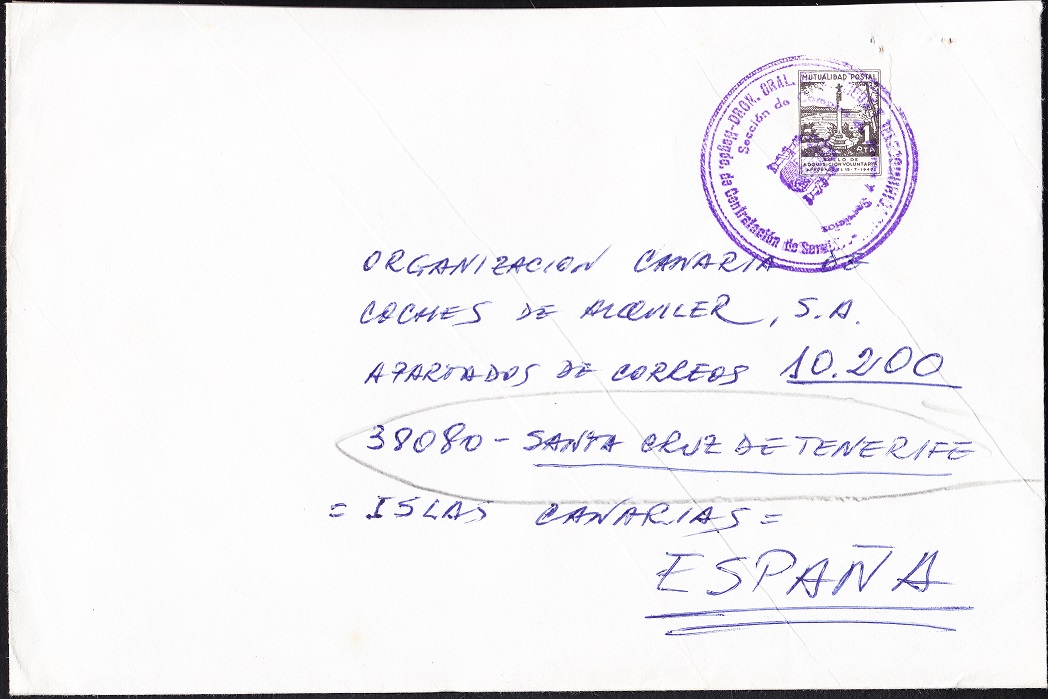 MUTUALIDAD POSTAL
1
PTA
SELLO DE
ADQUISICION VOLUNTARIA
DRON. GRAL.
Negdo. de Contratación de
Sección de
Servicios
ORGANIZACION CANARIA DE
COCHES DE ALQUILER, S.A.
APARTADOS DE CORREOS 10.200
38080 - SANTA CRUZ DE TENERIFE
= ISLAS CANARIAS =
ESPAÑA